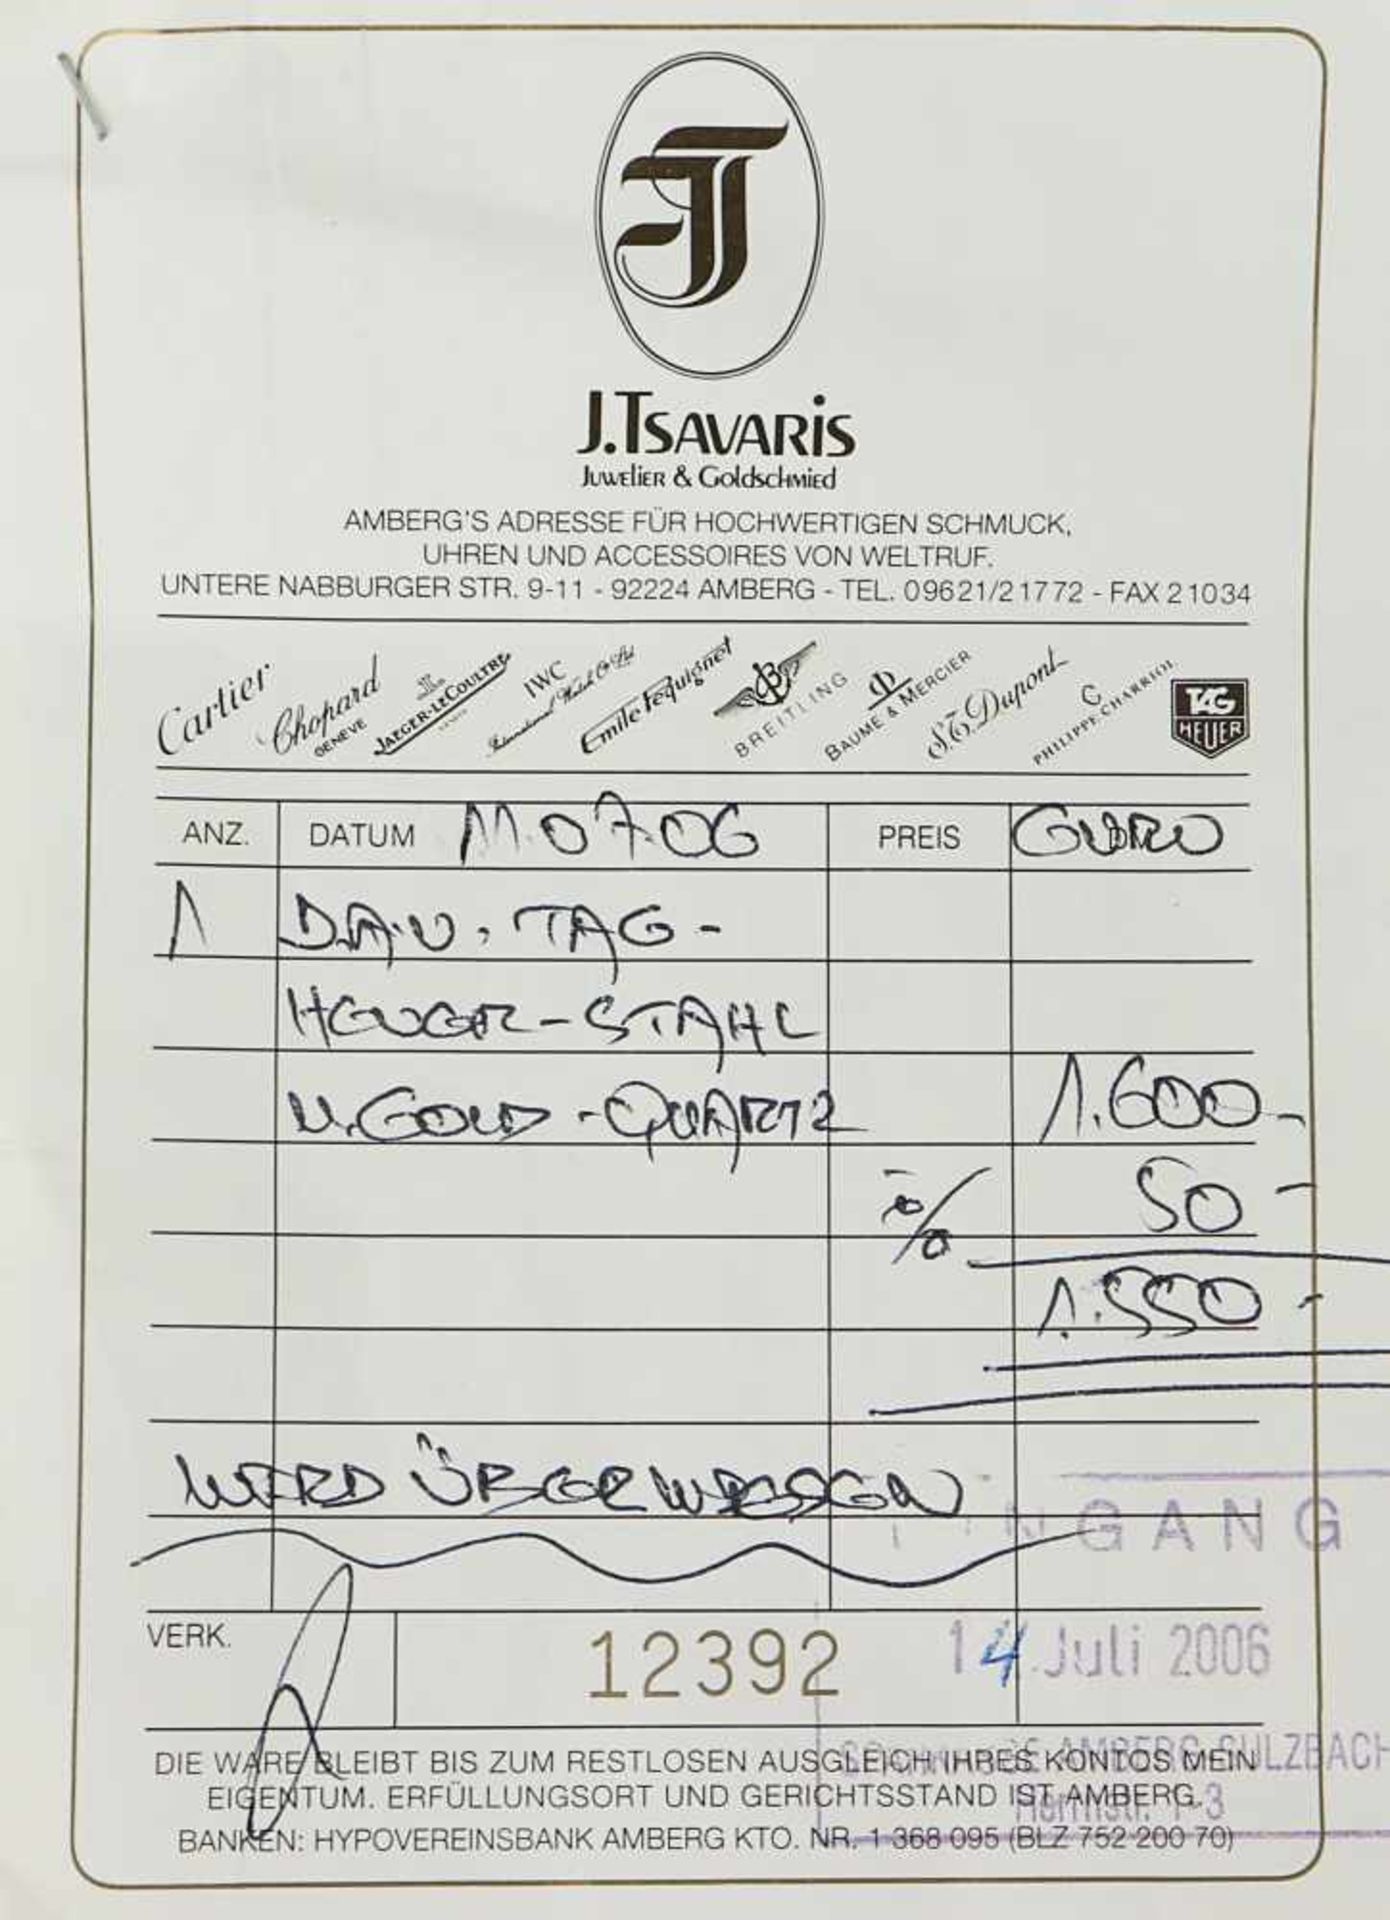 J. TSAVARIS
JUWELIER & GOLDSCHMIED
AMBERG'S ADRESSE FÜR HOCHWERTIGEN SCHMUCK,
UHREN UND ACCESSOIRES VON WELTRUF.
UNTERE NABBURGER STR. 9-11 - 92224 AMBERG - TEL. 09621/21772 - FAX 21034
Cartier Chopard GENEVE JAEGER-LECOULTRE IWC International Watch Co Ltd Emile Pequignet BREITLING BAUME & MERCIER S.T. Dupont C PHILIPPE CHARRIOL TAG HEUER
ANZ. DATUM 11.07.06 PREIS EURO
1 D.A.U. TAG-
HEUER-STAHL
U. GOLD-QUARTZ 1.600-
% 50-
1.550-
WIRD ÜBERWIESEN
EINGANG
VERK. 12392 14. Juli 2006
DIE WARE BLEIBT BIS ZUM RESTLOSEN AUSGLEICH IHRES KONTOS MEIN
AMBERG-SULZBACH
EIGENTUM. ERFÜLLUNGSORT UND GERICHTSSTAND IST AMBERG.
Herrnstr. 1-3
BANKEN: HYPOVEREINSBANK AMBERG KTO. NR. 1 368 095 (BLZ 752 200 70)